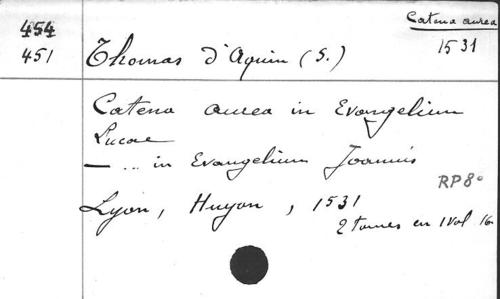 454
451
Catena aurea
1531
Thomas d'Aquin (S.)
Catena aurea in Evangelium
Lucae
— .. in Evangelium Joannis
RP 8°
Lyon, Huyon, 1531
2 tomes en 1 vol 16